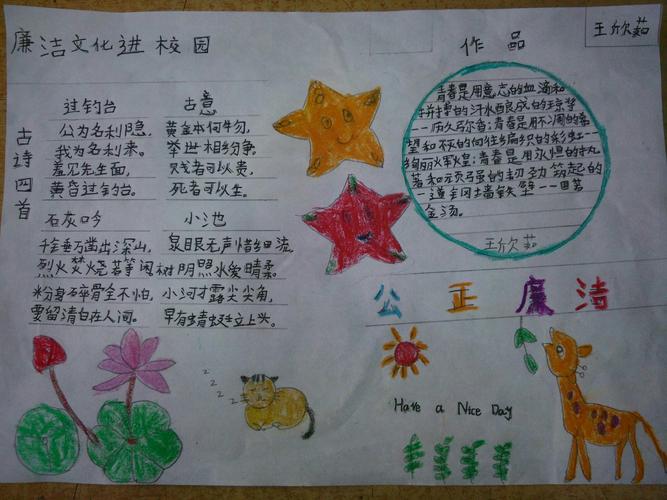 廉洁文化进校园
古诗四首
过钓台
公为名利隐,
我为名利来。
羞见先生面,
黄昏过钓台。
古意
黄金本何物,
举世相纷争。
贱者可以贵,
死者可以生。
石灰吟
千锤万凿出深山,
烈火焚烧若等闲
粉身碎骨全不怕,
要留清白在人间。
小池
泉眼无声惜细流
树阴照水爱晴柔。
小河才露尖尖角,
早有蜻蜓立上头。
作品
王欣茹
青春是用意志的血滴和
拼搏的汗水酿成的琼浆
--历久弥香;青春是用不凋的希
望和不灭的向往编织的彩虹--
绚丽辉煌;青春是用永恒的执
著和顽强的韧劲筑起的
一道铜墙铁壁---固若
金汤。
王欣茹
公正廉洁
Have a Nice Day
z z z